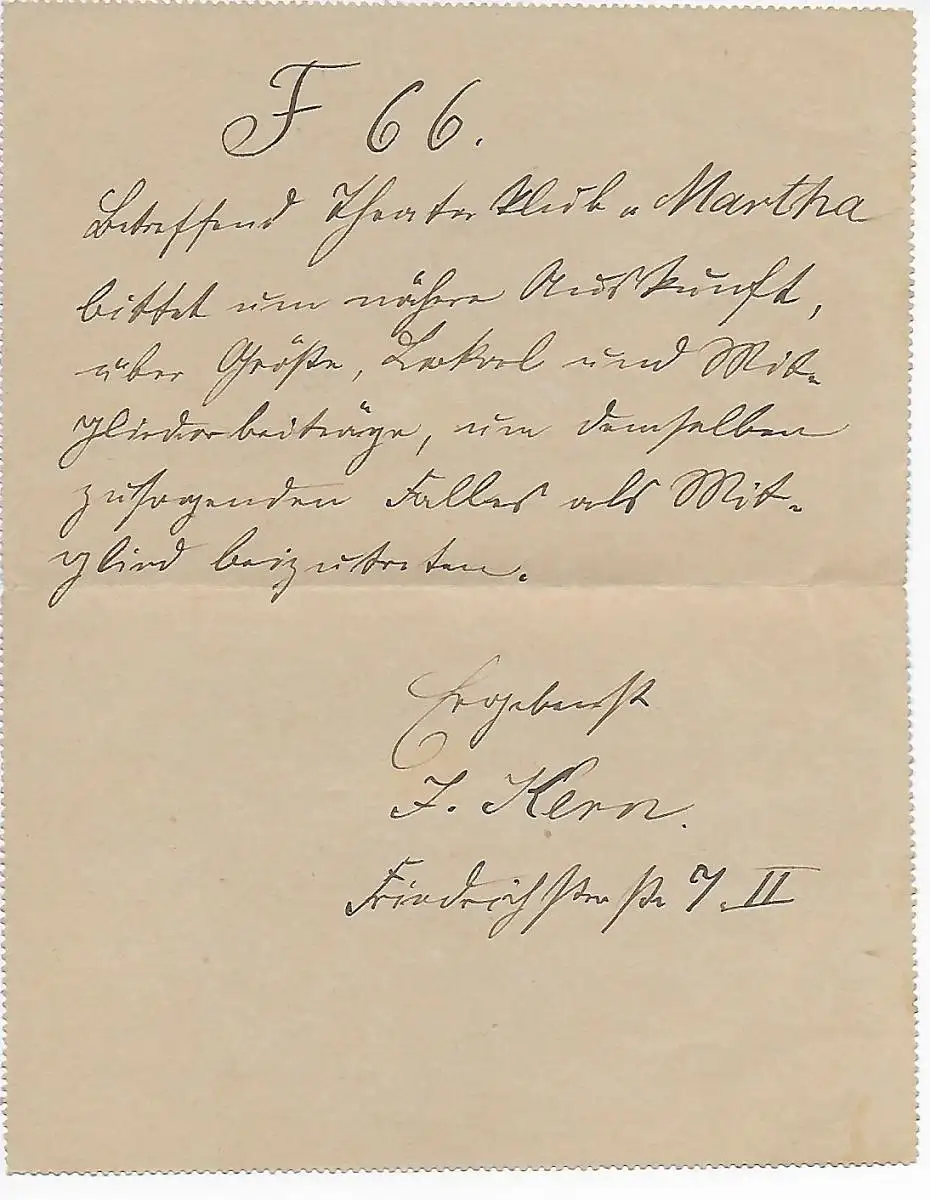 F 66.
Betreffend Theater Klub „Martha
bittet um nähere Auskunft,
über Größe, Lokal und Mit-
gliederbeiträge, um demselben
zusagenden Falles als Mit-
glied beizutreten.
Ergebenst
J. Kern.
Friedrichstraße 7. II